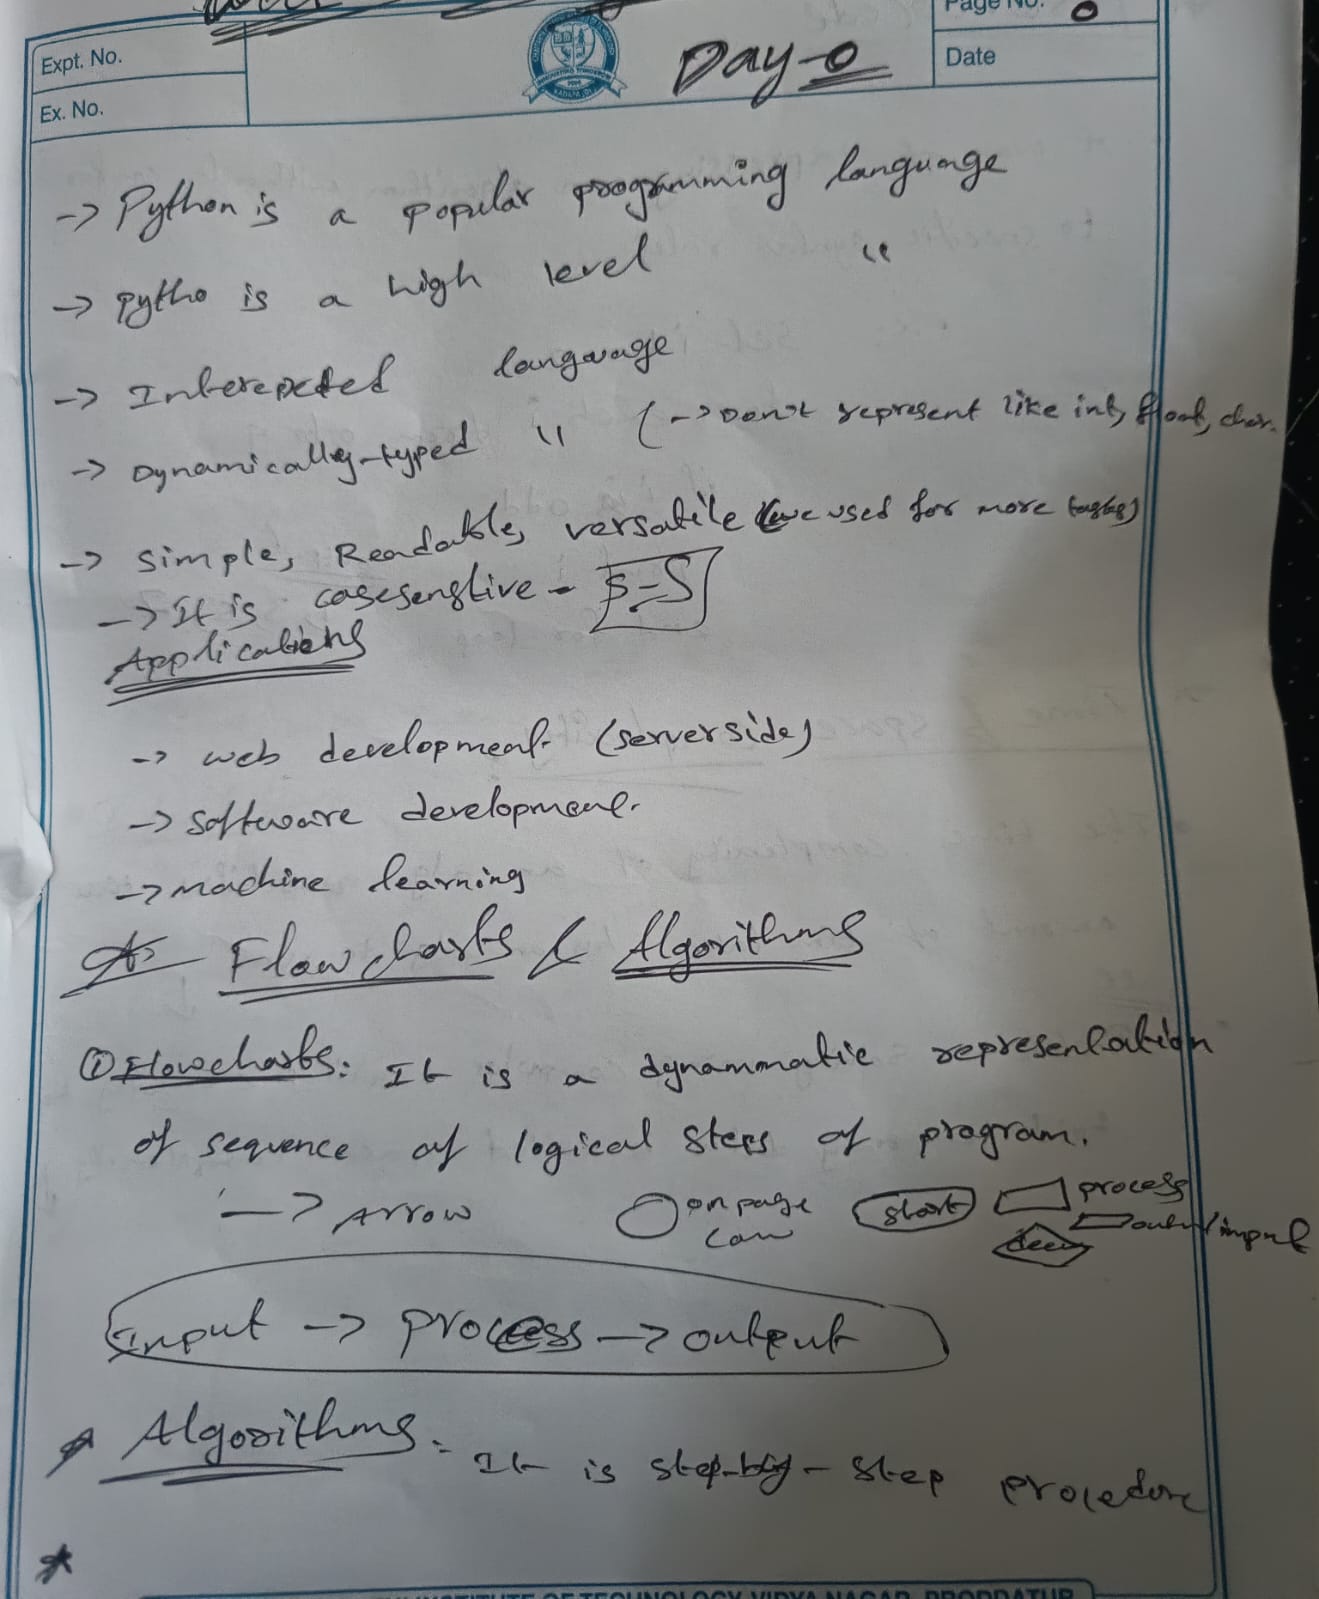 Page No. 0
Expt. No.
Day-0
Date
Ex. No.
-> Python is a popular programming language
-> Pytho is a high level "
-> Interepeted language
-> Dynamically-typed " (-> Don't represent like int, float, char.
-> Simple, Readable, versatile (we used for more tasks)
-> It is casesenstive - s=S
Applications
-> web development (serverside)
-> Software development.
-> Machine learning
Flow charts & Algorithms
① Flowcharts: It is a dynammatic representation
of sequence of logical steps of program.
-> Arrow on page start process
con decis output/input
Input -> process -> output
* Algorithms: It is step-by-step procedure
*
INSTITUTE OF TECHNOLOGY VIDYA NAGAR, PRODDATUR